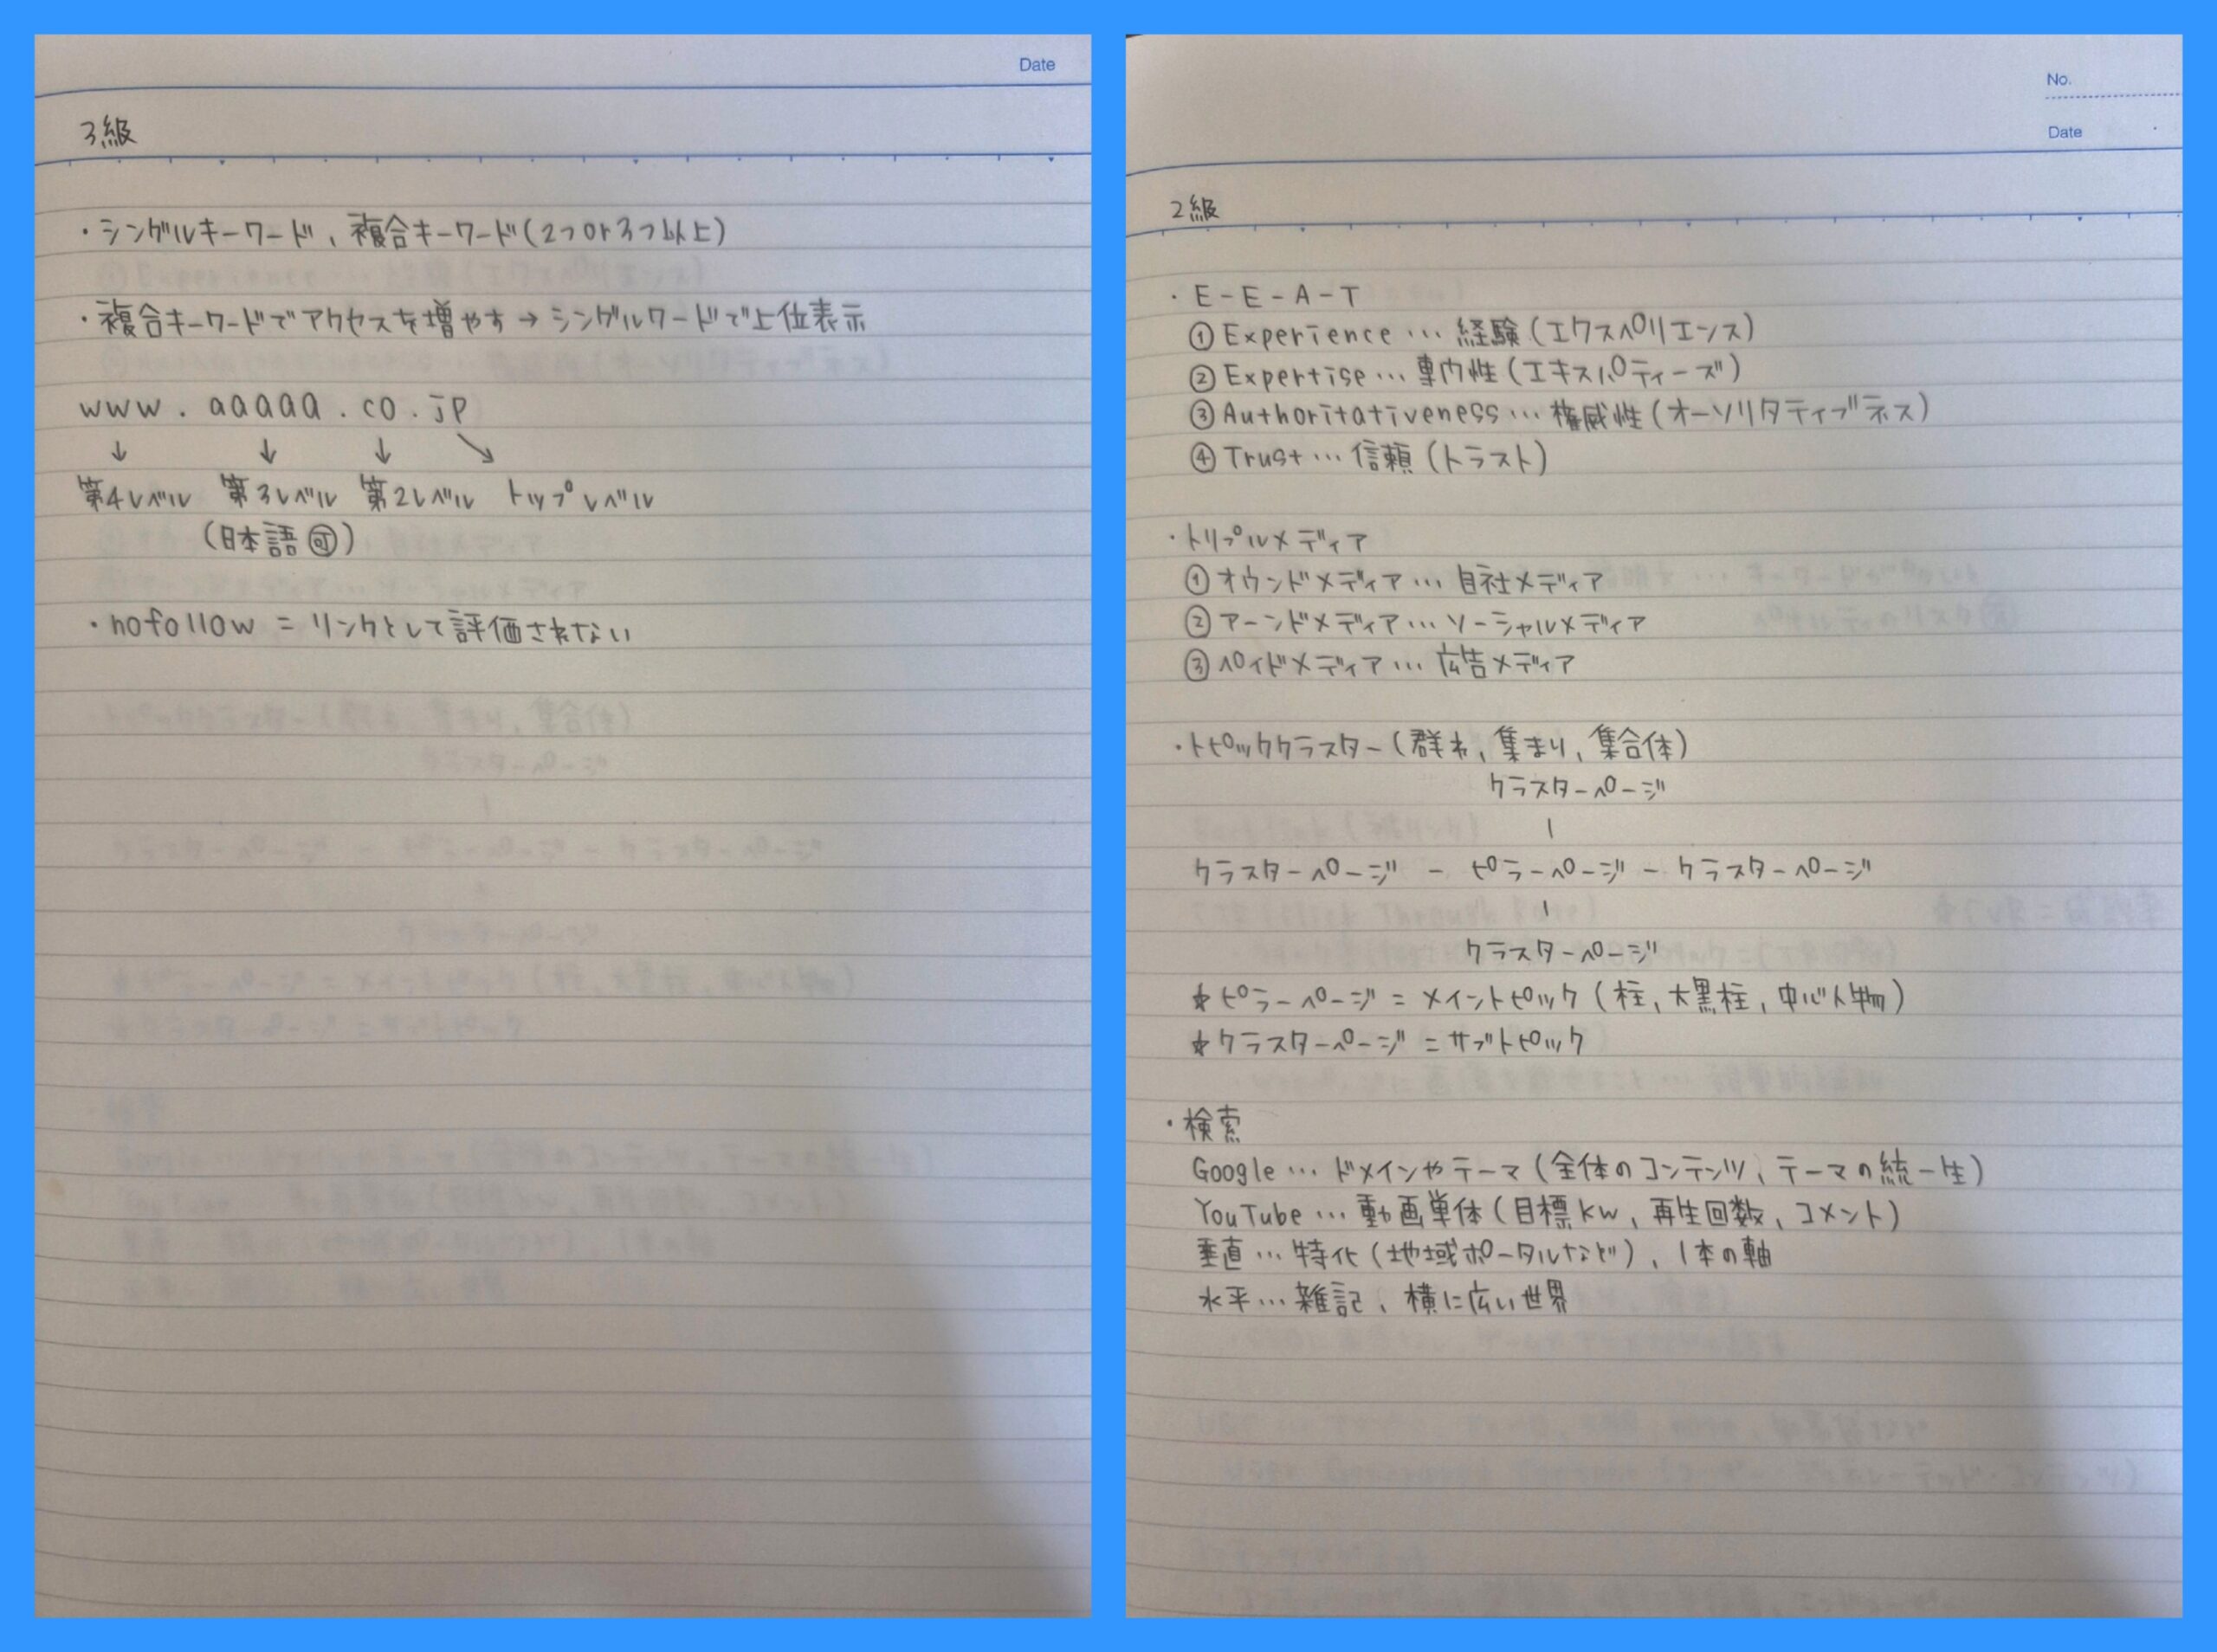 Date
3級
・シングルキーワード、複合キーワード(2つor3つ以上)
・複合キーワードでアクセスを増やす→シングルワードで上位表示
www.aaaaa.co.jp
↓ ↓ ↓ ↘
第4レベル 第3レベル 第2レベル トップレベル
(日本語可)
・nofollow = リンクとして評価されない
No.
Date
2級
・E-E-A-T
①Experience…経験(エクスペリエンス)
②Expertise…専門性(エキスパティーズ)
③Authoritativeness…権威性(オーソリタティブネス)
④Trust…信頼(トラスト)
・トリプルメディア
①オウンドメディア…自社メディア
②アーンドメディア…ソーシャルメディア
③ペイドメディア…広告メディア
・トピッククラスター(群れ、集まり、集合体)
クラスターページ
|
クラスターページ - ピラーページ - クラスターページ
|
クラスターページ
★ピラーページ=メイントピック(柱、大黒柱、中心人物)
★クラスターページ=サブトピック
・検索
Google…ドメインやテーマ(全体のコンテンツ、テーマの統一生)
YouTube…動画単体(目標kw、再生回数、コメント)
垂直…特化(地域ポータルなど)、1本の軸
水平…雑記、横に広い世界